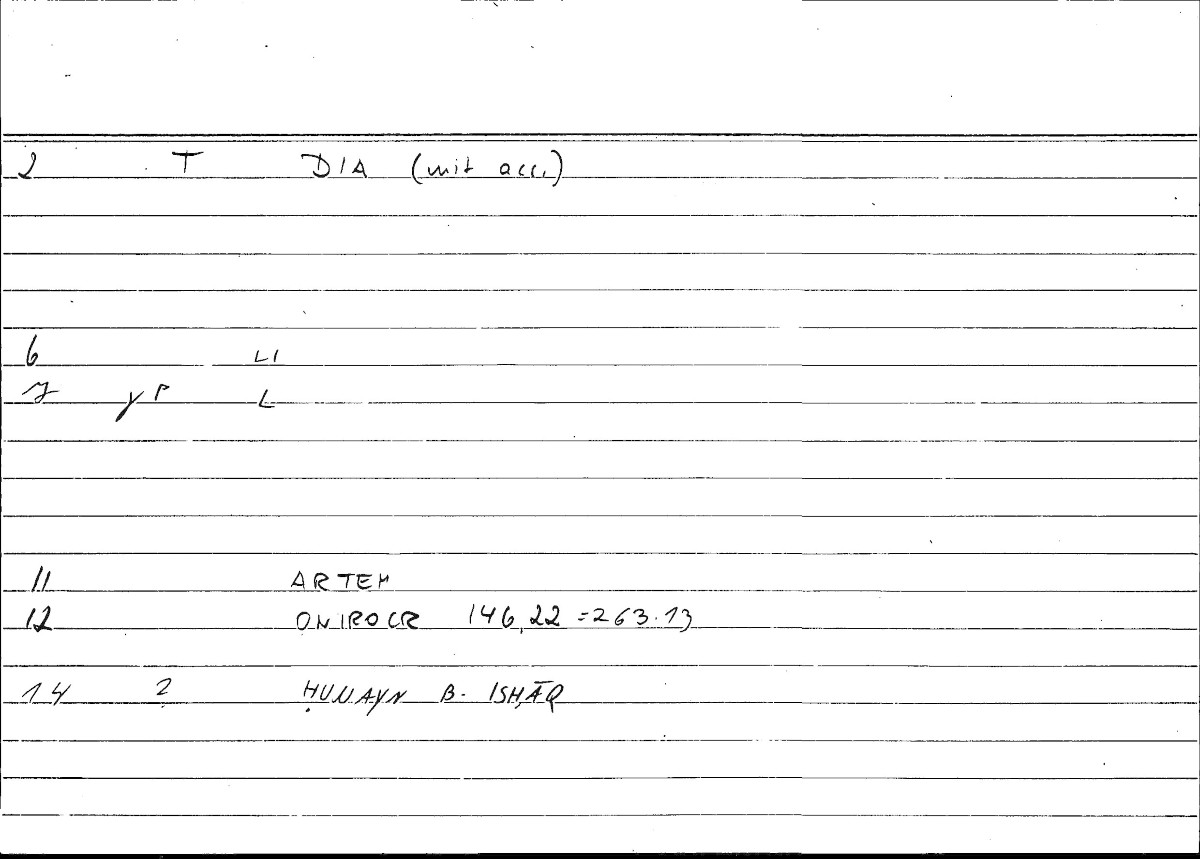 2 T DIA (mit acc.)
6 LI
7 γ P L
11 ARTEM
12 ONIROCR 146,22 = 263.13
14 2 ḤUNAYN B. ISḤĀQ